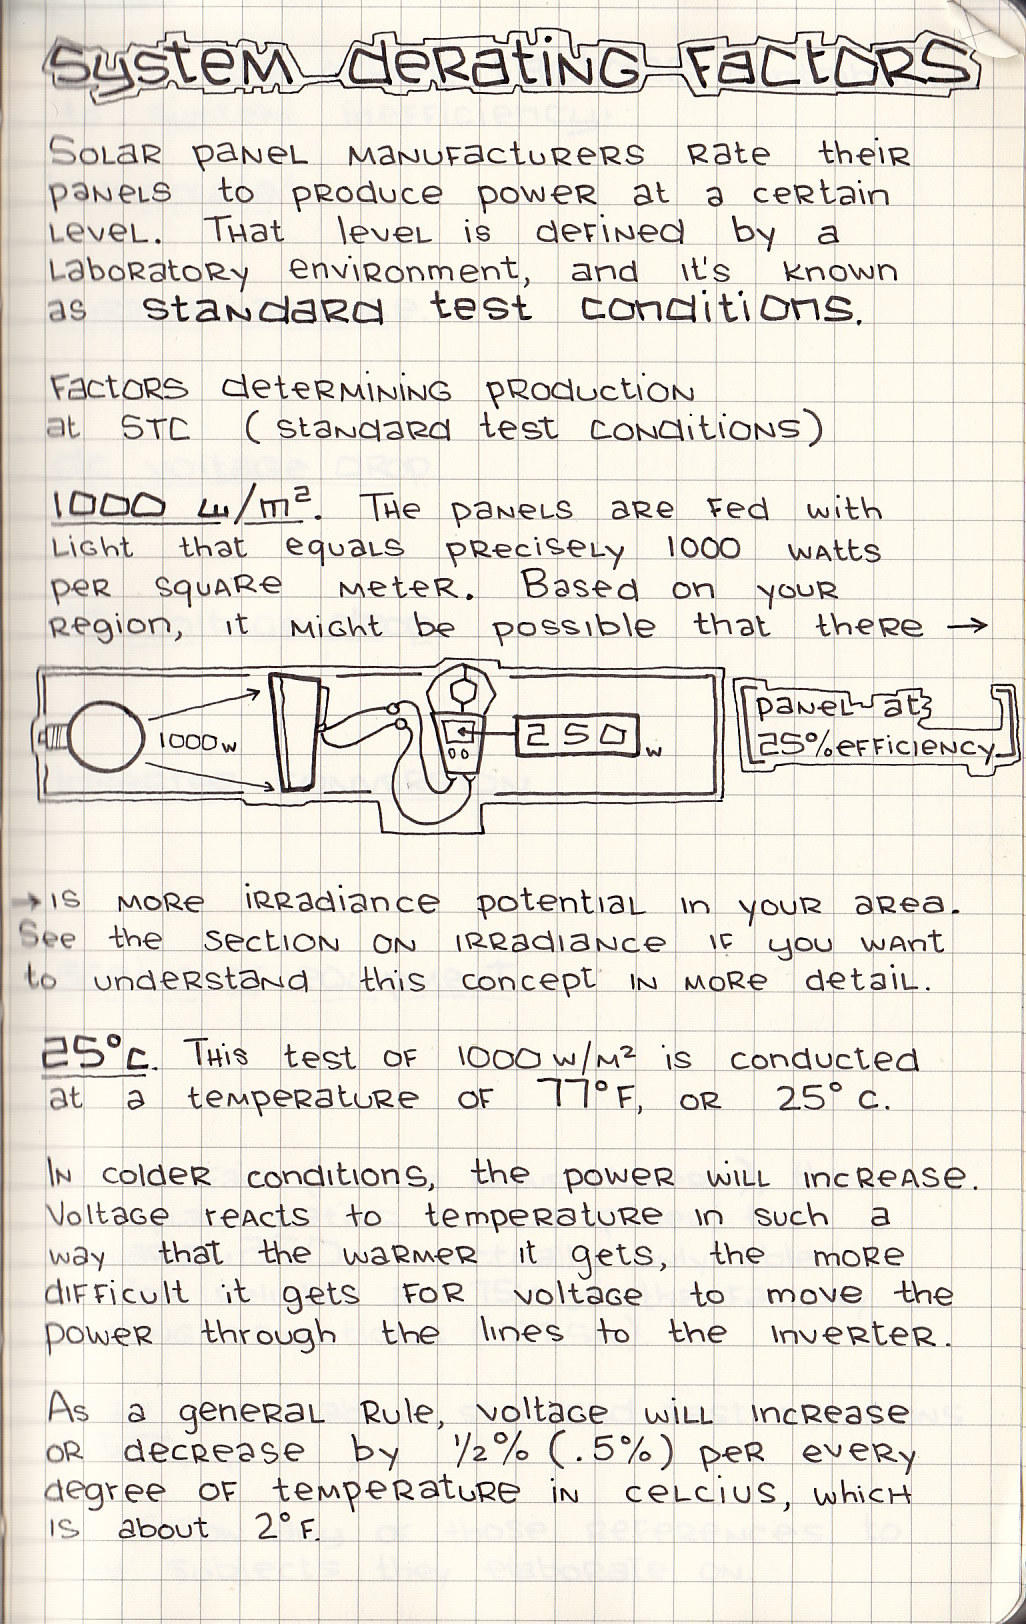 System Derating Factors
Solar panel manufacturers rate their
panels to produce power at a certain
level. That level is defined by a
laboratory environment, and it's known
as standard test conditions.
Factors determining production
at STC (standard test conditions)
1000 w/m². The panels are fed with
light that equals precisely 1000 watts
per square meter. Based on your
region, it might be possible that there →
1000w
250w
panel at
25% efficiency
→ is more irradiance potential in your area.
See the section on irradiance if you want
to understand this concept in more detail.
25°c. This test of 1000 w/m² is conducted
at a temperature of 77°F, or 25° c.
In colder conditions, the power will increase.
Voltage reacts to temperature in such a
way that the warmer it gets, the more
difficult it gets for voltage to move the
power through the lines to the inverter.
As a general rule, voltage will increase
or decrease by ½% (.5%) per every
degree of temperature in celcius, which
is about 2°F.